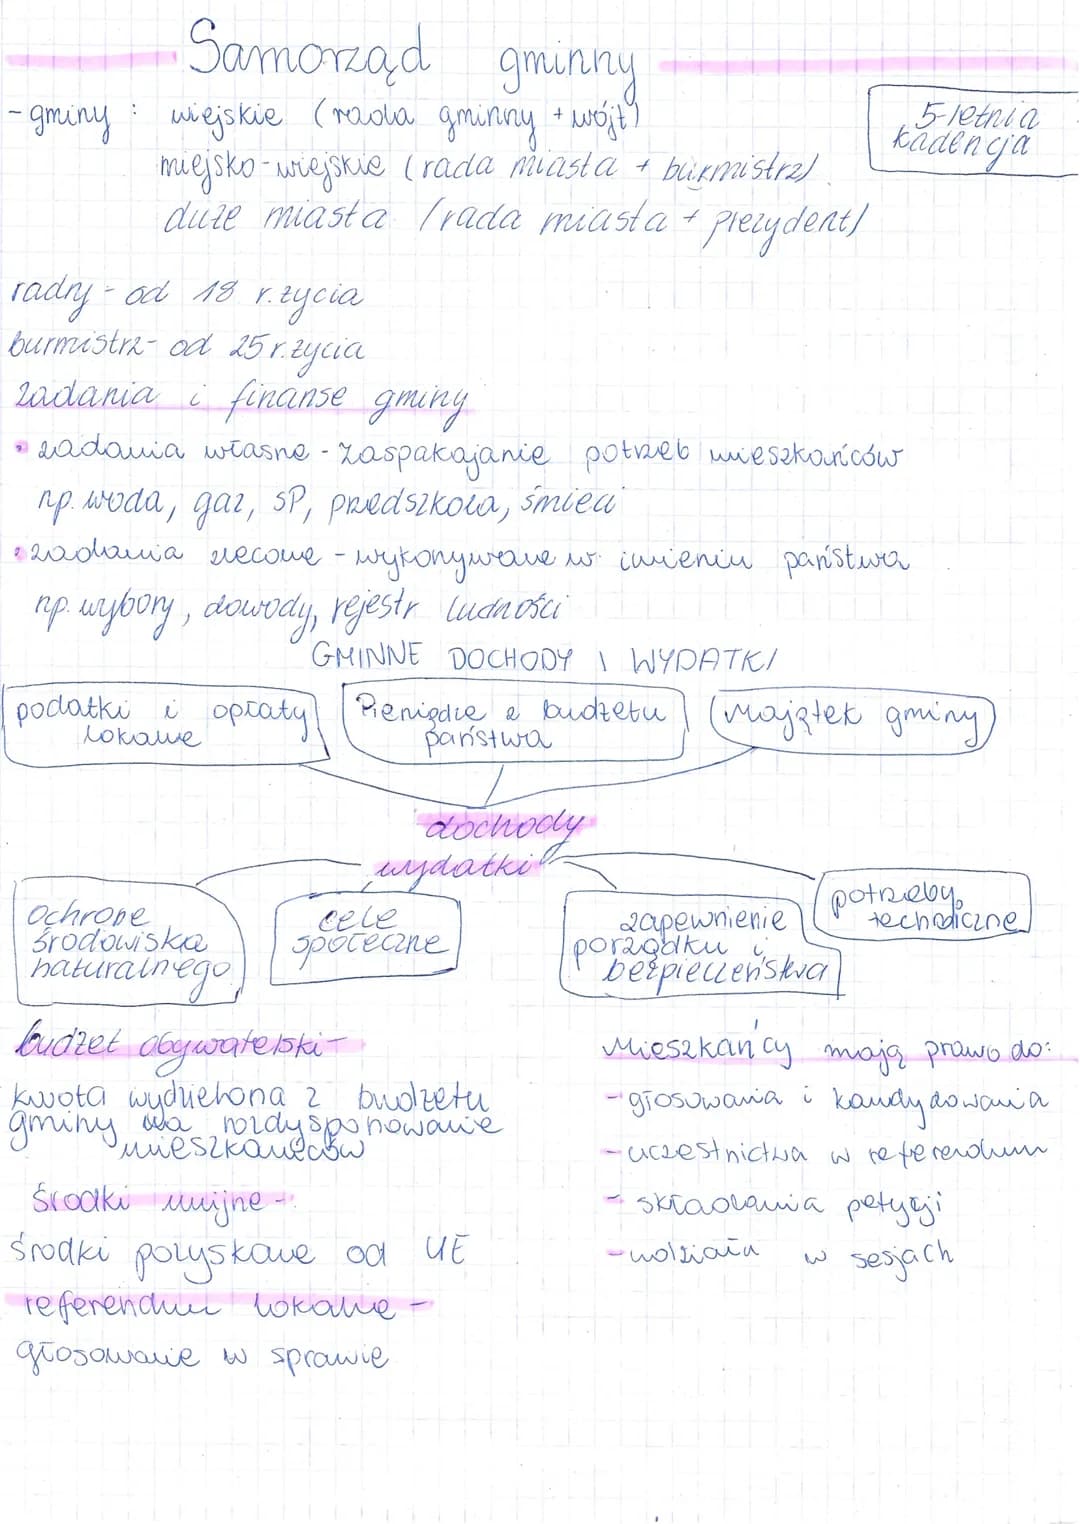 Samorząd gminny
- gminy : wiejskie (rada gminny + wójt)
5-letnia
kadencja
miejsko-wiejskie (rada miasta + burmistrz)
duże miasta (rada miasta + prezydent)
radny - od 18 r. życia
burmistrz - od 25 r. życia
zadania i finanse gminy
• zadania własne - zaspakajanie potrzeb mieszkańców
np. woda, gaz, SP, przedszkola, śmieci
• zadania zlecone - wykonywane w imieniu państwa
np. wybory, dowody, rejestr ludności
GMINNE DOCHODY I WYDATKI
podatki i opłaty
lokalne
Pieniądze z budżetu
państwa
Majątek gminy
dochody
wydatki
ochronę
środowiska
naturalnego
cele
społeczne
zapewnienie
porządku i
bezpieczeństwa
potrzeby
techniczne
budżet obywatelski -
kwota wydzielona z budżetu
gminy dla rozdysponowanie
mieszkańców
środki unijne -
środki pozyskane od UE
referendum lokalne -
głosowanie w sprawie
Mieszkańcy mają prawo do:
- głosowania i kandydowania
- uczestnictwa w referendum
- składania petycji
- udziału w sesjach